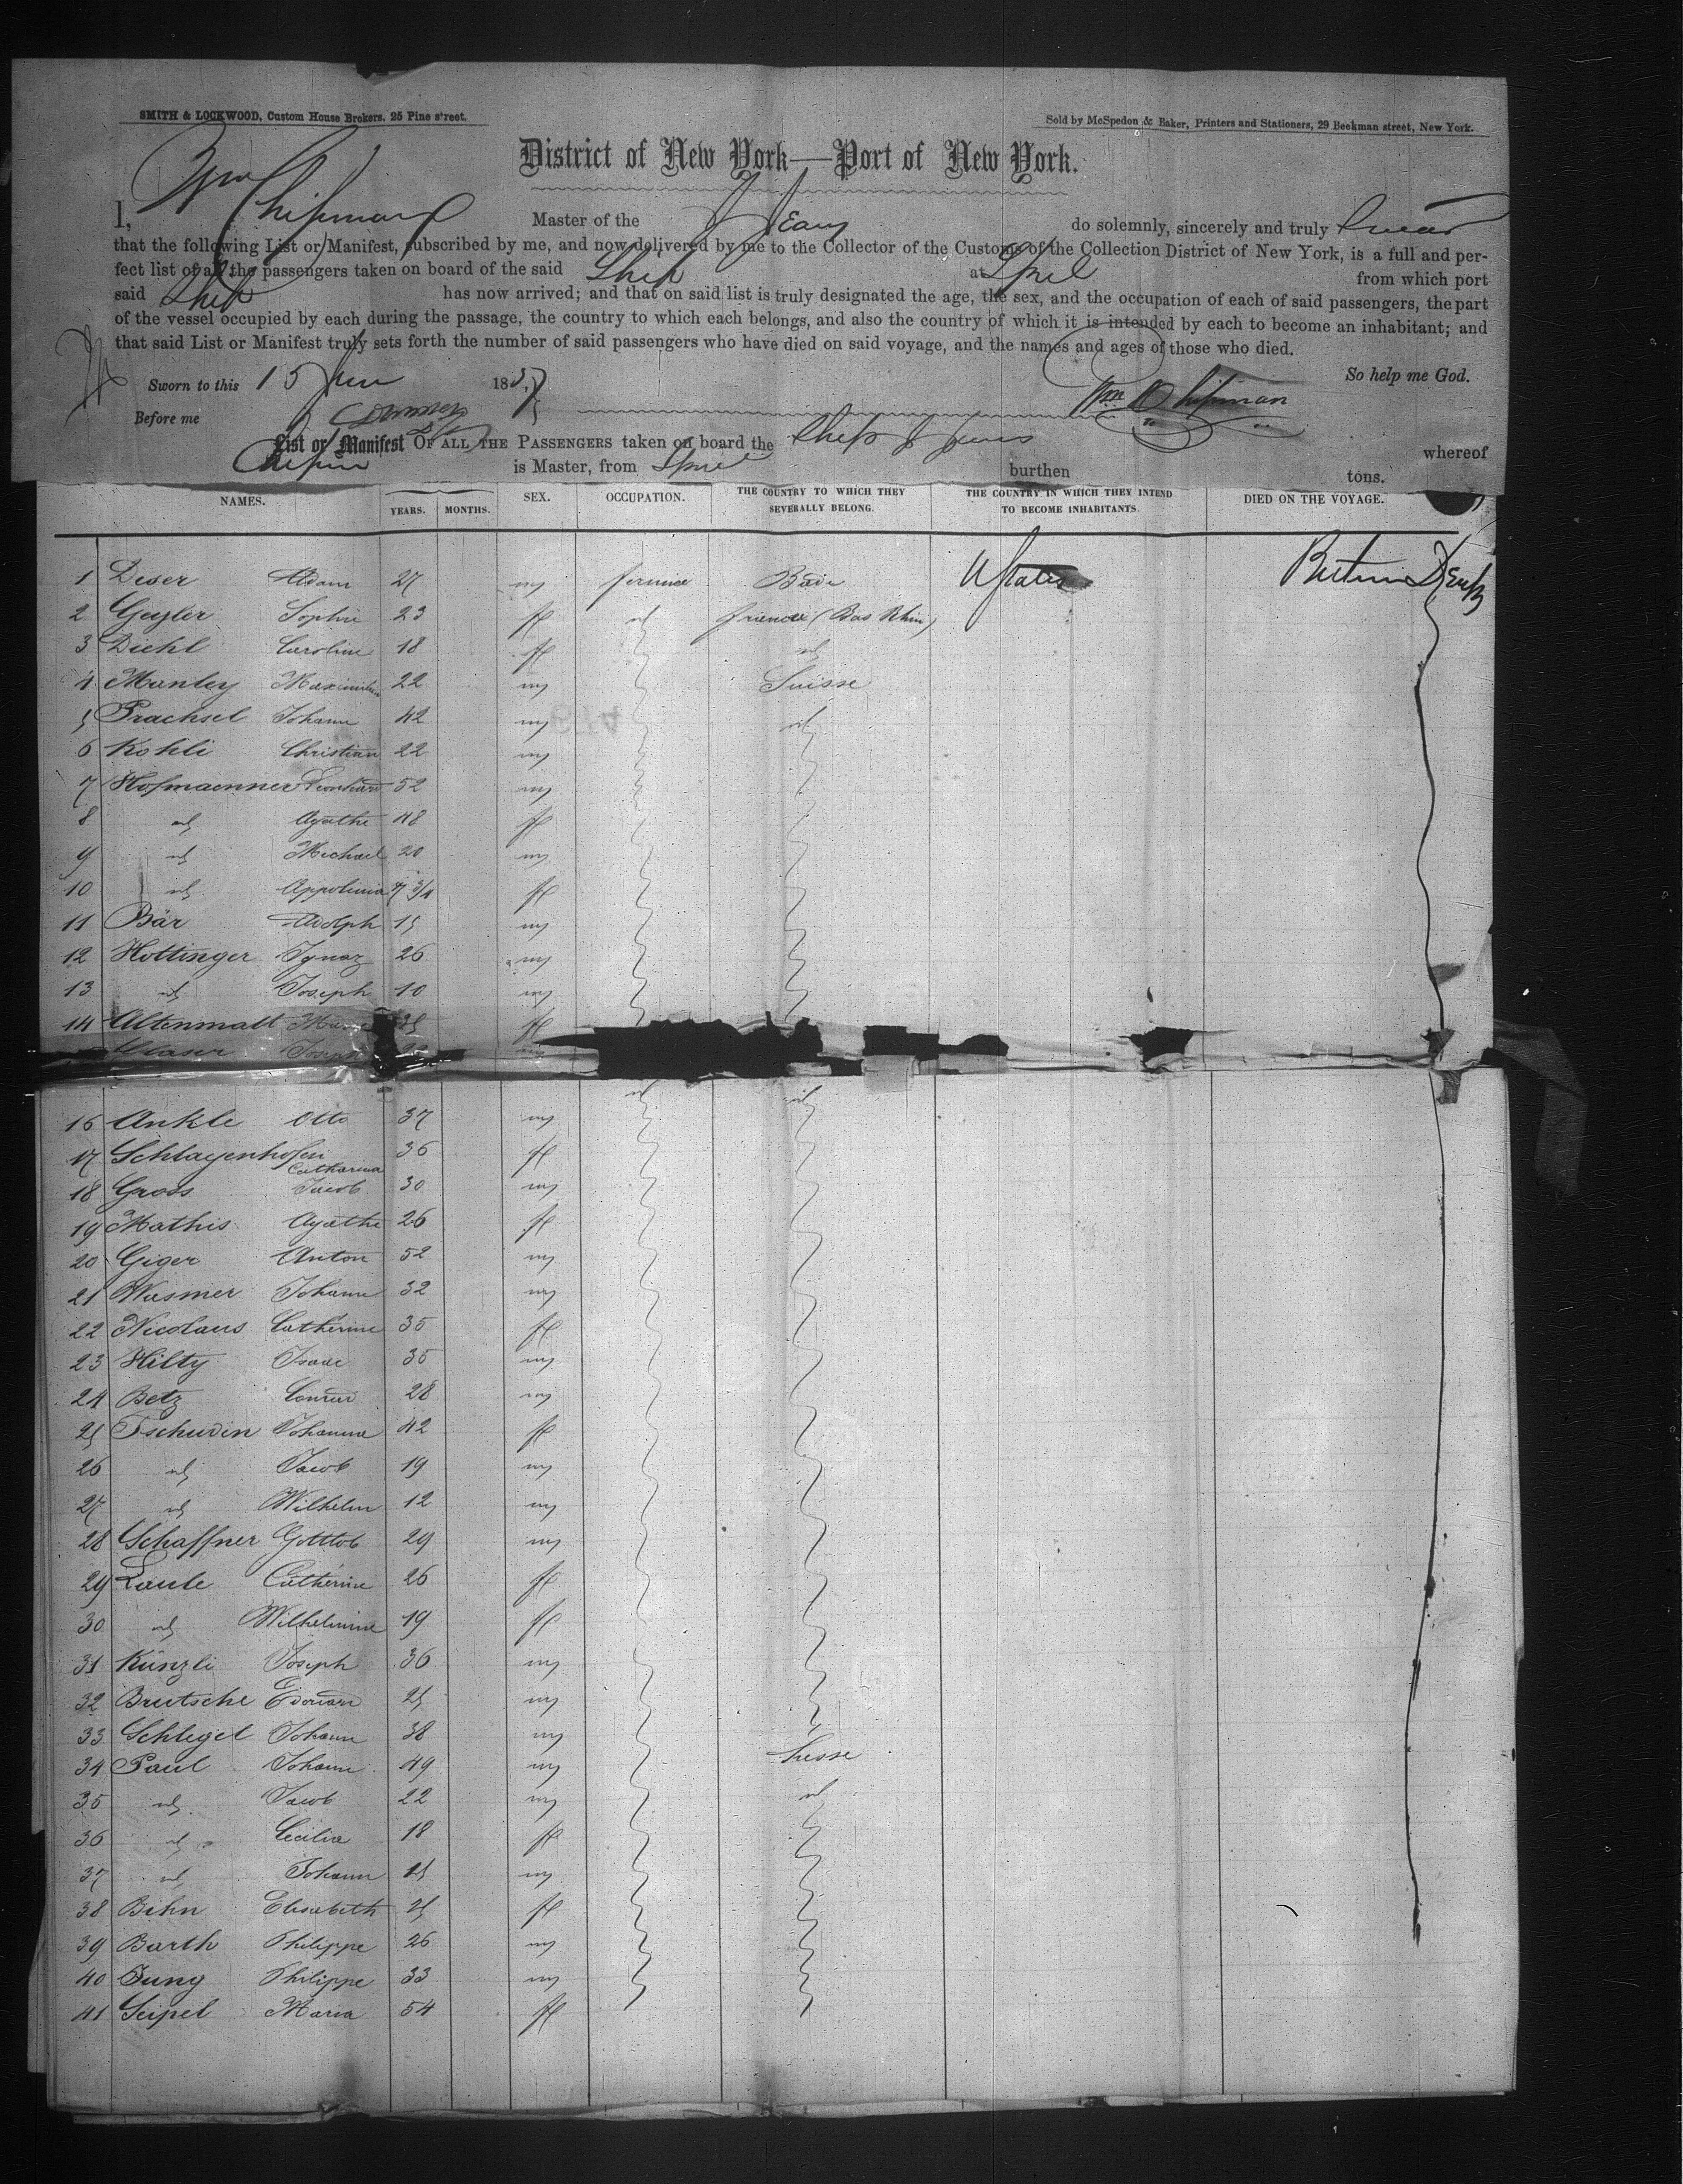 SMITH & LOCKWOOD, Custom House Brokers, 25 Pine street.
Sold by McSpedon & Baker, Printers and Stationers, 29 Beekman street, New York.
District of New York—Port of New York.
I, Wm Chipman Master of the do solemnly, sincerely and truly swear
that the following List or Manifest, subscribed by me, and now delivered by me to the Collector of the Customs of the Collection District of New York, is a full and per-
fect list of all the passengers taken on board of the said Ship at from which port
said Ship has now arrived; and that on said list is truly designated the age, the sex, and the occupation of each of said passengers, the part
of the vessel occupied by each during the passage, the country to which each belongs, and also the country of which it is intended by each to become an inhabitant; and
that said List or Manifest truly sets forth the number of said passengers who have died on said voyage, and the names and ages of those who died.
So help me God.
Sworn to this 15 185
Before me Wm Chipman
List or Manifest OF ALL THE PASSENGERS taken on board the Ship whereof
is Master, from burthen tons.
NAMES. YEARS. MONTHS. SEX. OCCUPATION. THE COUNTRY TO WHICH THEY SEVERALLY BELONG. THE COUNTRY IN WHICH THEY INTEND TO BECOME INHABITANTS. DIED ON THE VOYAGE.
1 Deser Adam 27 m Bade UStates
2 Geyler Sophie 23 f id (Bas Rhin)
3 Diehl Caroline 18 f id
4 Manley 22 m Suisse
5 Prachsel Johann 42 m id
6 Kohli Christian 22 m
7 Hofmaenner 52 m
8 id Agathe 48 f
9 id Michael 20 m
10 id Appolinia 7 3/4 f
11 Bär Adolph 15 m
12 Hottinger Ignaz 26 m
13 id Joseph 10 m
14 Altenmatt f
Joseph m
id id
16 Ankle Otto 37 m
17 Schlagenhofen Catharina 36 f
18 Gross Jacob 30 m
19 Mathis Agathe 26 f
20 Giger Anton 52 m
21 Wasmer Johann 32 m
22 Nicolaus Cathérine 35 f
23 Hilty Isaac 35 m
24 Betz Conrad 28 m
25 Tschudin Johanna 42 f
26 id Jacob 19 m
27 id Wilhelm 12 m
28 Schaffner Gottlob 29 m
29 Laule Cathérine 26 f
30 id Wilhelmine 19 f
31 Künzli Joseph 36 m
32 Brutsche Edouard 25 m
33 Schlegel Johann 38 m
34 Paul Johann 49 m hesse
35 id Jacob 22 m id
36 id Cecilia 18 f
37 id Johann 15 m
38 Bihn Elisabeth 25 f
39 Barth Philippe 26 m
40 Jung Philippe 33 m
41 Seipel Maria 54 f